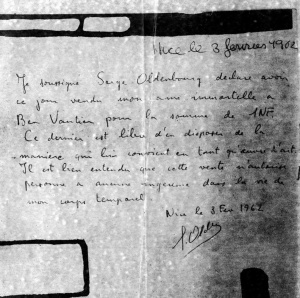 Nice le 3 fevrier 1962
Je soussigné Serge Oldenbourg déclare avoir
ce jour vendu mon ame immortelle a
Ben Vautier pour la somme de 1NF.
Ce dernier est libre d'en disposer de la
manière qui lui convient en tant qu'œuvre d'art.
Il est bien entendu que cette vente n'autorise
personne a aucune ingérence dans la vie de
mon corps temporel
Nice le 3 Fev 1962
S. Olden